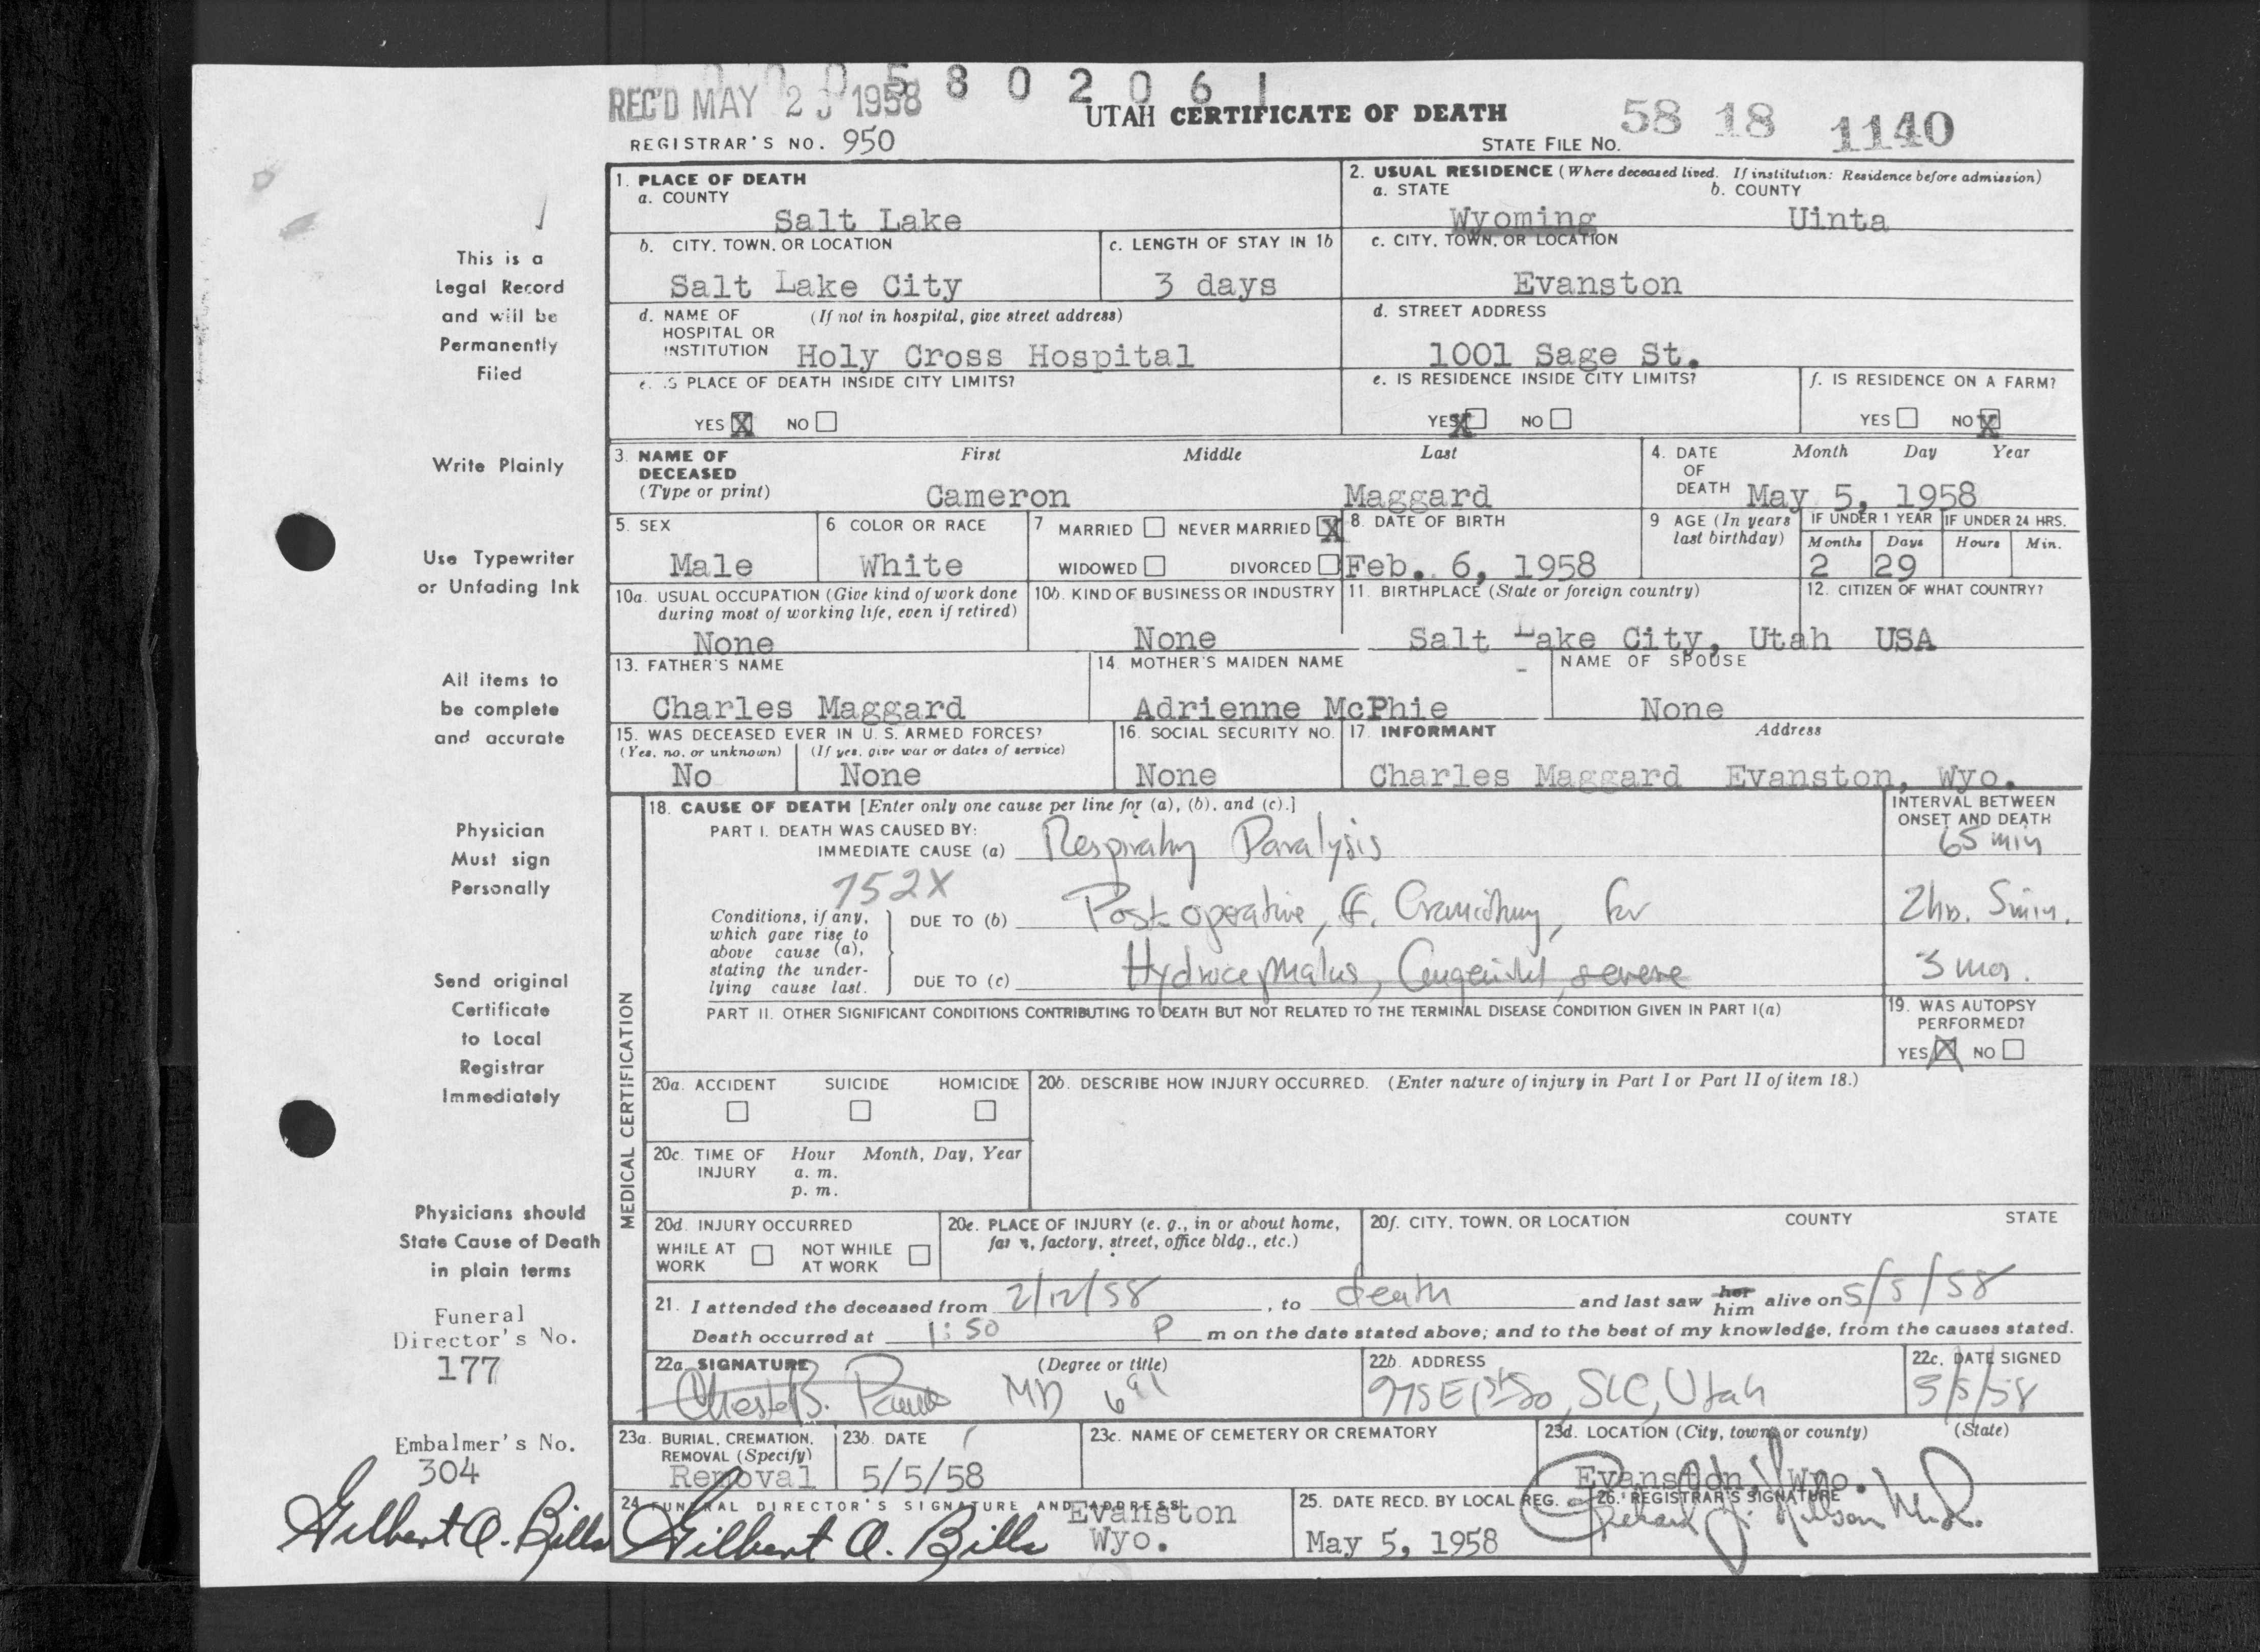 REC'D MAY 2 1958
5 8 0 2 0 6 1
UTAH CERTIFICATE OF DEATH
58 18 1140
REGISTRAR'S NO. 950
STATE FILE NO.
1. PLACE OF DEATH
a. COUNTY
Salt Lake
2. USUAL RESIDENCE (Where deceased lived. If institution: Residence before admission)
a. STATE b. COUNTY
Wyoming Uinta
b. CITY, TOWN, OR LOCATION
Salt Lake City
c. LENGTH OF STAY IN 1b
3 days
c. CITY, TOWN, OR LOCATION
Evanston
d. NAME OF (If not in hospital, give street address)
HOSPITAL OR
INSTITUTION Holy Cross Hospital
d. STREET ADDRESS
1001 Sage St.
e. IS PLACE OF DEATH INSIDE CITY LIMITS?
YES X NO
e. IS RESIDENCE INSIDE CITY LIMITS?
YES X NO
f. IS RESIDENCE ON A FARM?
YES NO X
3. NAME OF First Middle Last
DECEASED
(Type or print) Cameron Maggard
4. DATE Month Day Year
OF
DEATH May 5, 1958
5. SEX
Male
6 COLOR OR RACE
White
7 MARRIED NEVER MARRIED X
WIDOWED DIVORCED
8. DATE OF BIRTH
Feb. 6, 1958
9 AGE (In years
last birthday)
IF UNDER 1 YEAR
Months Days
2 29
IF UNDER 24 HRS.
Hours Min.
10a. USUAL OCCUPATION (Give kind of work done
during most of working life, even if retired)
None
10b. KIND OF BUSINESS OR INDUSTRY
None
11. BIRTHPLACE (State or foreign country)
Salt Lake City, Utah
12. CITIZEN OF WHAT COUNTRY?
USA
13. FATHER'S NAME
Charles Maggard
14. MOTHER'S MAIDEN NAME
Adrienne McPhie
NAME OF SPOUSE
None
15. WAS DECEASED EVER IN U. S. ARMED FORCES?
(Yes, no, or unknown) (If yes, give war or dates of service)
No None
16. SOCIAL SECURITY NO.
None
17. INFORMANT Address
Charles Maggard Evanston, Wyo.
MEDICAL CERTIFICATION
18. CAUSE OF DEATH [Enter only one cause per line for (a), (b), and (c).]
INTERVAL BETWEEN
ONSET AND DEATH
PART I. DEATH WAS CAUSED BY:
IMMEDIATE CAUSE (a) Respiratory Paralysis 65 min
752X
Conditions, if any,
which gave rise to
above cause (a),
stating the under-
lying cause last.
DUE TO (b) Post operative, Craniotomy, for 2 hrs. 5 min.
DUE TO (c) Hydrocephalus, Congenital, severe 3 mos.
PART II. OTHER SIGNIFICANT CONDITIONS CONTRIBUTING TO DEATH BUT NOT RELATED TO THE TERMINAL DISEASE CONDITION GIVEN IN PART I(a)
19. WAS AUTOPSY
PERFORMED?
YES X NO
20a. ACCIDENT SUICIDE HOMICIDE
20b. DESCRIBE HOW INJURY OCCURRED. (Enter nature of injury in Part I or Part II of item 18.)
20c. TIME OF Hour Month, Day, Year
INJURY a. m.
p. m.
20d. INJURY OCCURRED
WHILE AT NOT WHILE
WORK AT WORK
20e. PLACE OF INJURY (e. g., in or about home,
farm, factory, street, office bldg., etc.)
20f. CITY, TOWN, OR LOCATION COUNTY STATE
21. I attended the deceased from 2/12/58, to death and last saw her him alive on 5/5/58
Death occurred at 1:50 P m on the date stated above; and to the best of my knowledge, from the causes stated.
22a. SIGNATURE (Degree or title)
Chester B. MD
22b. ADDRESS
975 E 1st So, SLC, Utah
22c. DATE SIGNED
5/5/58
23a. BURIAL, CREMATION,
REMOVAL (Specify)
Removal
23b. DATE
5/5/58
23c. NAME OF CEMETERY OR CREMATORY
23d. LOCATION (City, town, or county) (State)
Evanston, Wyo.
24 FUNERAL DIRECTOR'S SIGNATURE AND ADDRESS
Gilbert A. Bills Evanston
Wyo.
25. DATE RECD. BY LOCAL REG.
May 5, 1958
26. REGISTRAR'S SIGNATURE
This is a
Legal Record
and will be
Permanently
Filed
Write Plainly
Use Typewriter
or Unfading Ink
All items to
be complete
and accurate
Physician
Must sign
Personally
Send original
Certificate
to Local
Registrar
Immediately
Physicians should
State Cause of Death
in plain terms
Funeral
Director's No.
177
Embalmer's No.
304
Gilbert A. Bills